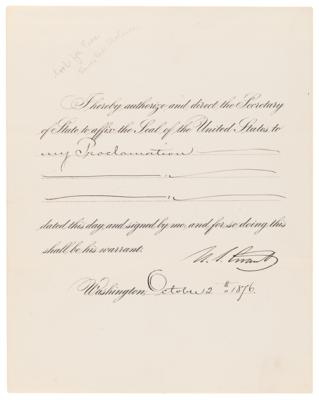 I hereby authorize and direct the Secretary
of State to affix the Seal of the United States to
my Proclamation
dated this day, and signed by me; and for so doing this
shall be his warrant.
U. S. Grant
Washington, October 2th 1876.